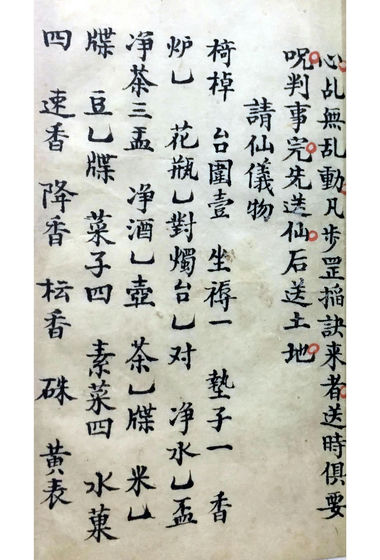 心乱無乱動凡步罡搯訣来者送時俱要
呪判事完先送仙后送土地
請仙儀物
椅棹 台圍壹 坐褥一 墊子一 香
炉乚 花瓶乚對燭台乚对 净水乚盃
净茶三盃 净酒乚壺 茶乚牒 米乚
牒 豆乚牒 菜子四 素菜四 水菓
四 速香 降香 枟香 硃 黃表